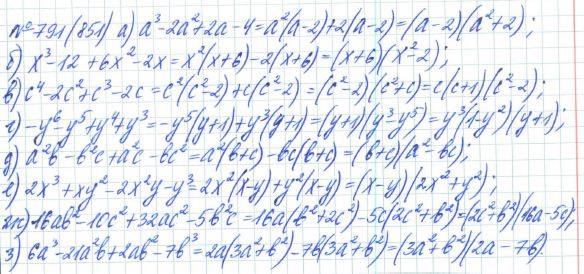 № 791 (851) а) a³-2a²+2a-4=a²(a-2)+2(a-2)=(a-2)(a²+2);
б) x³-12+6x²-2x=x²(x+6)-2(x+6)=(x+6)(x²-2);
в) c⁴-2c²+c³-2c=c²(c²-2)+c(c²-2)=(c²-2)(c²+c)=c(c+1)(c²-2);
г) -y⁶-y⁵+y⁴+y³=-y⁵(y+1)+y³(y+1)=(y+1)(y³-y⁵)=y³(1-y²)(y+1);
д) a²b-b²c+a²c-bc²=a²(b+c)-bc(b+c)=(b+c)(a²-bc);
е) 2x³+xy²-2x²y-y³=2x²(x-y)+y²(x-y)=(x-y)(2x²+y²);
ж) 16ab²-10c²+32ac²-5b²c=16a(b²+2c²)-5c(2c²+b²)=(2c²+b²)(16a-5c);
з) 6a³-21a²b+2ab²-7b³=2a(3a²+b²)-7b(3a²+b²)=(3a²+b²)(2a-7b).